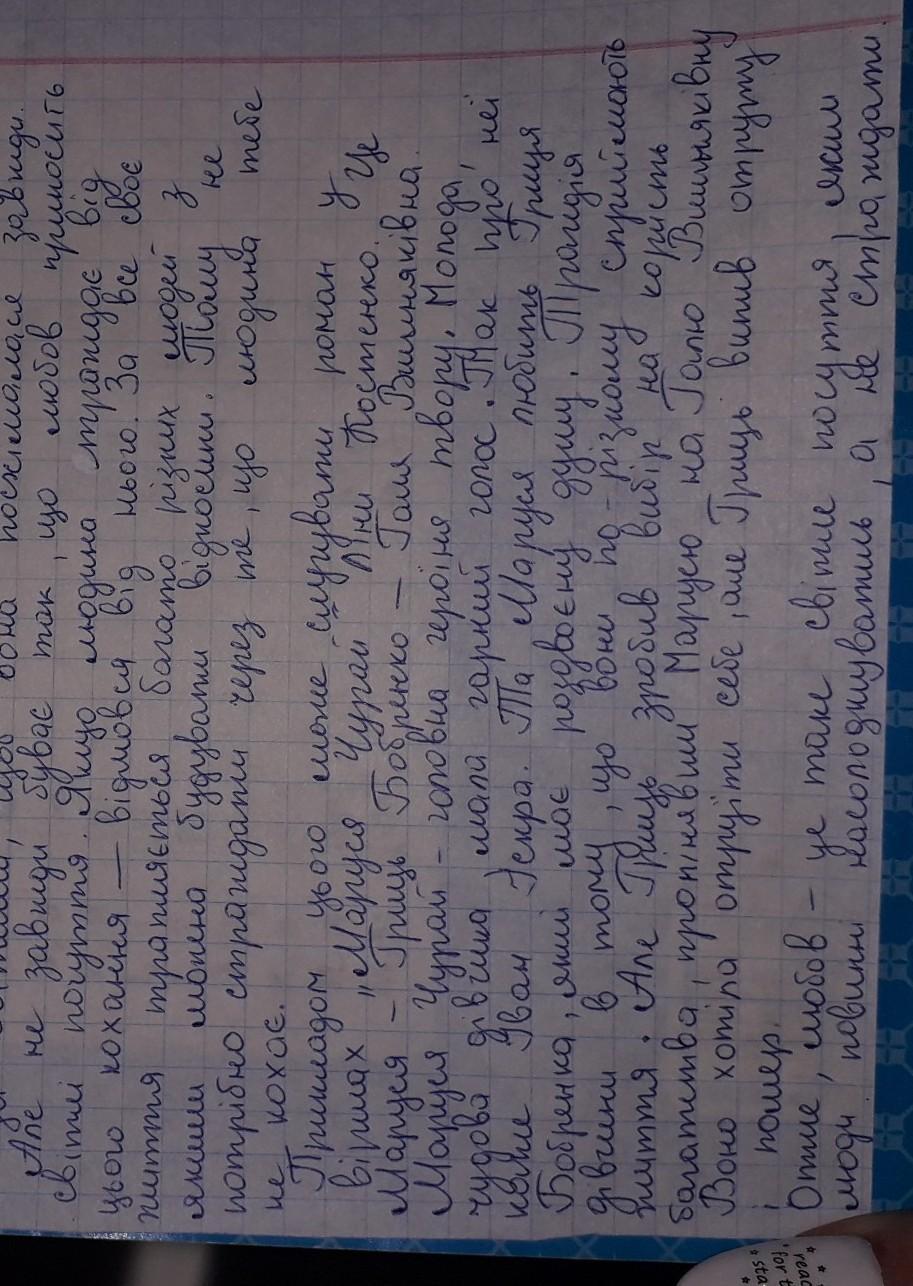 вона посміхалася завжди.
Але не завжди буває так, що любов приносить
світлі почуття. Якщо людина страждає від
цього кохання — відмовся від нього. За все своє
життя трапляється багато різних людей з
якими можна будувати відносини. Тому не
потрібно страждати через те, що людина тебе
не кохає.
Прикладом цього може слугувати роман у
віршах "Маруся Чурай" Ліни Костенко. Це
Маруся – Гриць Бобренко – Галя Вишняківна.
Маруся Чурай – головна героїня твору. Молода,
чудова дівчина мала гарний голос. Так про неї
каже Іван Іскра. Та Маруся любить Гриця
Бобренка, який має роздвоєну душу. Трагідія
дівчини в тому, що вони по-різному сприймають
життя. Але Гриць зробив вибір на користь
багатства, проміняв ши Марусю на Галю Вишняківну
Воно хотіла отруїти себе, але Гриць випив отруту
і помер.
Отже, любов – це таке світле почуття яким
люди повинні насолоджуватись, а не страждати.
* reac
* for t
* sta